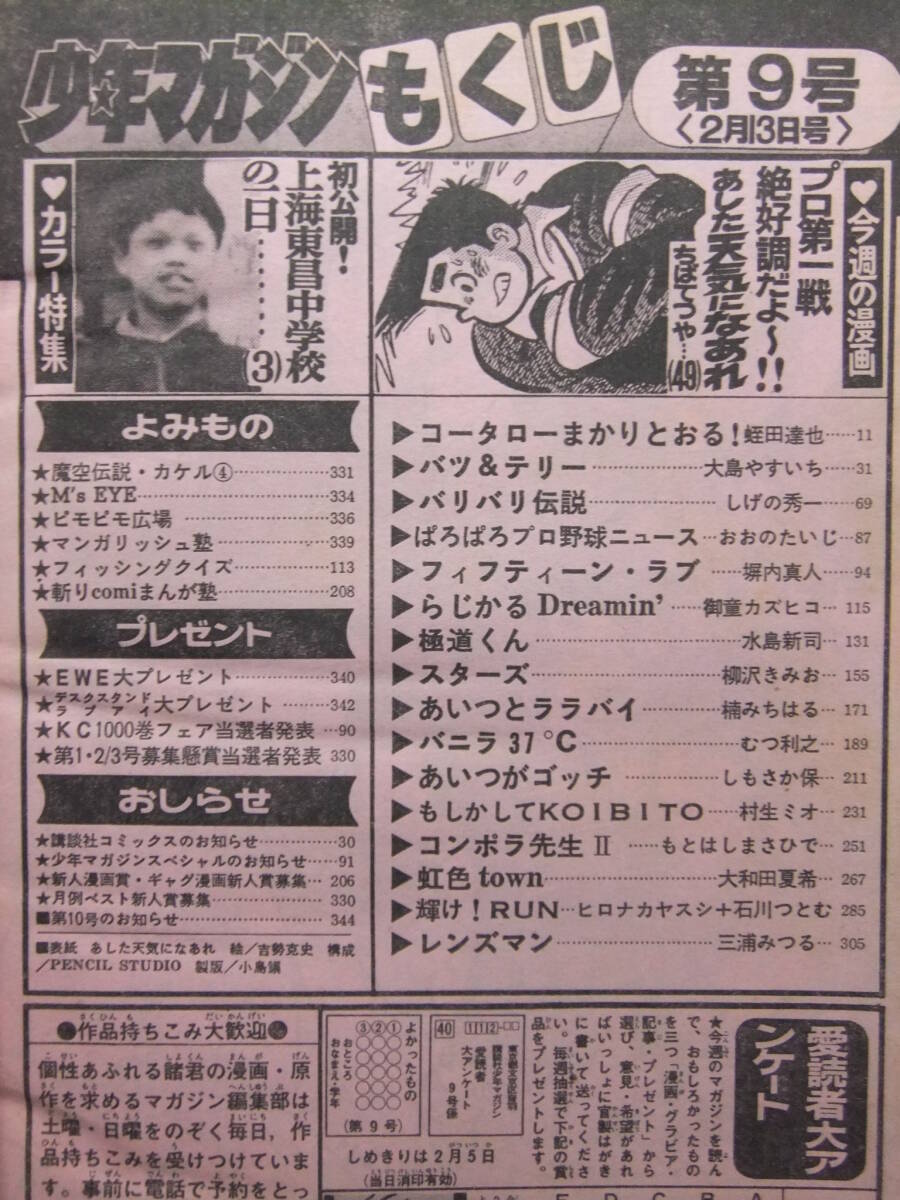 少年マガジン もくじ
第9号
〈2月13日号〉
♥今週の漫画
プロ第一戦
絶好調だよ〜!!
あした天気になあれ
ちばてつや…(49)
♥カラー特集
初公開!
上海東昌中学校
の一日………(3)
▶コータローまかりとおる!蛭田達也……11
▶バツ&テリー……………大島やすいち…31
▶バリバリ伝説……………しげの秀一…69
▶ぱろぱろプロ野球ニュース…おおのたいじ…87
▶フィフティーン・ラブ……塀内真人…94
▶らじかるDreamin'……御童カズヒコ…115
▶極道くん……………水島新司…131
▶スターズ……………柳沢きみお…155
▶あいつとララバイ……………楠みちはる…171
▶バニラ37℃……………むつ利之…189
▶あいつがゴッチ……………しもさか保…211
▶もしかしてKOIBITO……村生ミオ…231
▶コンポラ先生Ⅱ……もとはしまさひで…251
▶虹色town……………大和田夏希…267
▶輝け!RUN…ヒロナカヤスシ+石川つとむ 285
▶レンズマン……………三浦みつる…305
よみもの
★魔空伝説・カケル④……………331
★M's EYE……………334
★ピモピモ広場……………336
★マンガリッシュ塾……………339
★フィッシングクイズ……………113
★斬りcomiまんが塾……………208
プレゼント
★EWE大プレゼント……………340
★デスクスタンドラブアイ大プレゼント………342
★KC1000巻フェア当選者発表…90
★第1・2/3号募集懸賞当選者発表 330
おしらせ
★講談社コミックスのお知らせ………30
★少年マガジンスペシャルのお知らせ……91
★新人漫画賞・ギャグ漫画新人賞募集…206
★月例ベスト新人賞募集……………330
■第10号のお知らせ……………344
■表紙 あした天気になあれ 絵/吉勢克史 構成
/PENCIL STUDIO 製版/小島鎮
●作品持ちこみ大歓迎●
個性あふれる諸君の漫画・原
作を求めるマガジン編集部は
土曜・日曜をのぞく毎日,作
品持ちこみを受けつけていま
す。事前に電話で予約をとっ
よかったもの
①②③
おところ
おなまえ・学年
(第9号)
40
112-□□
東京都文京区音羽
講談社少年マガジン
愛読者
大アンケート
9号係
しめきりは2月5日
(当日消印有効)
愛読者大ア
ンケート
★今週のマガジンを読ん
で、おもしろかったもの
を三つ「漫画・グラビア・
記事・プレゼント」から
選び、意見・希望があれ
ばいっしょに官製はがき
に書いて送ってくださ
い。毎週抽選で下記の賞
品をプレゼントします。
E D C B A